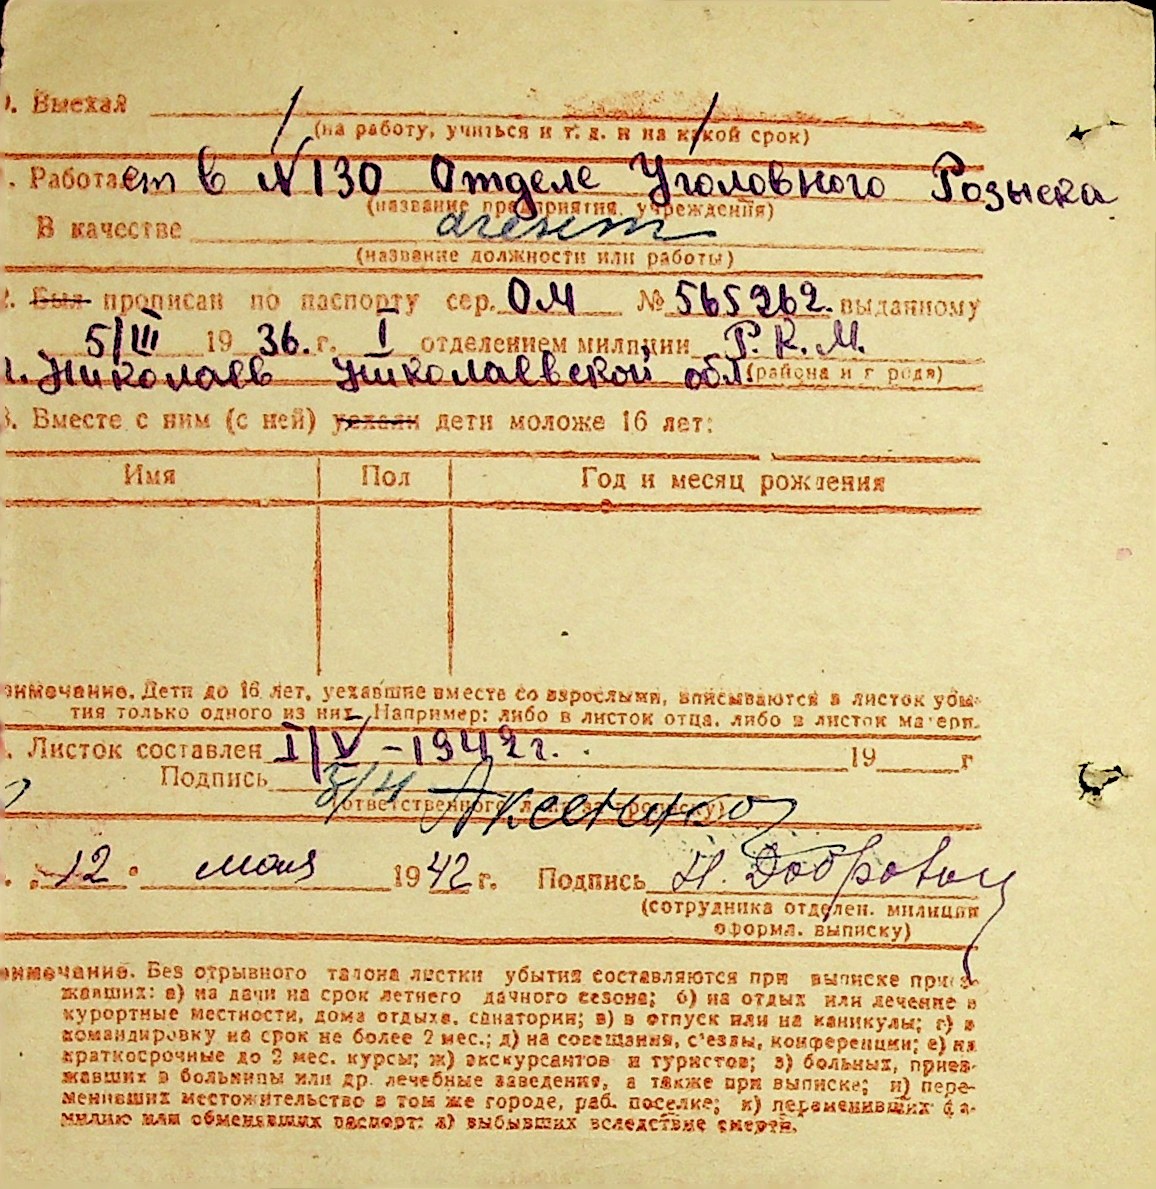 . Выехал
(на работу, учиться и т. д. и на какой срок)
. Работает в №130 Отделе Уголовного Розыска
(название предприятия, учреждения)
В качестве агент
(название должности или работы)
2. Был прописан по паспорту сер. ОМ № 565262. выданному
5/III 1936. г. I отделением милиции Р. К. М.
г. Николаев Николаевской обл. (района и г рода)
3. Вместе с ним (с ней) уехали дети моложе 16 лет:
Имя Пол Год и месяц рождения
римечание. Дети до 16 лет, уехавшие вместе со взрослыми, вписываются в листок убы-
тия только одного из них. Например: либо в листок отца, либо в листок матери.
. Листок составлен I/V - 1942 г. 19 г
Подпись Аксененко
(ответственного за прописку)
. "12" мая 1942 г. Подпись Н. Добровол
(сотрудника отделен. милиции
оформл. выписку)
римечание. Без отрывного талона листки убытия составляются при выписке приез-
жавших: а) на дачи на срок летнего дачного сезона; б) на отдых или лечение в
курортные местности, дома отдыха, санатории; в) в отпуск или на каникулы; г) в
командировку на срок не более 2 мес.; д) на совещания, с'езды, конференции; е) на
краткосрочные до 2 мес. курсы; ж) экскурсантов и туристов; з) больных, приез-
жавших в больницы или др. лечебные заведения, а также при выписке; и) пере-
менивших местожительство в том же городе, раб. поселке; к) переменивших фа-
милию или обменявших паспорт; л) выбывших вследствие смерти.